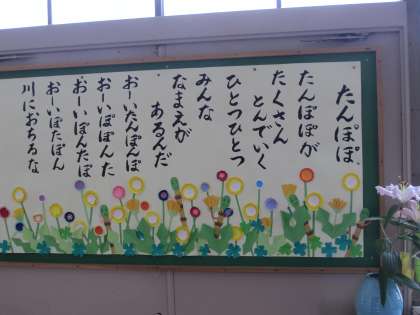 たんぽぽ
たんぽぽが
たくさん
とんでいく
ひとつひとつ
みんな
なまえが
あるんだ
おーいたんぽぽ
おーいぽぽんた
おーいぽんたぽ
おーいぽたぽん
川におちるな